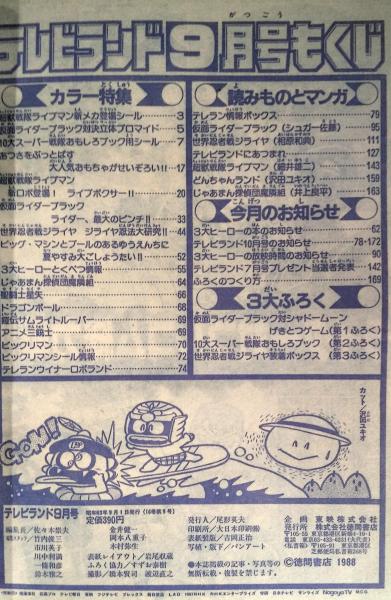 がつごう
テレビランド9月号もくじ
カラー特集
超獣戦隊ライブマン新メカ登場シール 3
仮面ライダーブラック対決立体ブロマイド 5
10大スーパー戦隊おもしろブック用シール 7
あつさをぶっとばす
大人気おもちゃがせいぞろい!! 17
超獣戦隊ライブマン
新ロボ登場! ライブボクサー!! 20
仮面ライダーブラック
ライダー、最大のピンチ!! 33
世界忍者戦ジライヤ ジライヤ忍法大研究!! 44
ビッグ・マシンとプールのあるゆうえんちに
夏やすみ大ごしょうたい!! 52
3大ヒーローとくべつ情報 55
じゃあまん探偵団魔隣組 64
聖闘士星矢 66
ドラゴンボール 68
鎧伝サムライトルーパー 69
アニメ三銃士 69
ビックリマン 70
ビックリマンシール情報 72
テレランウイナーロボランド 74
読みものとマンガ
テレラン情報ボックス 79
仮面ライダーブラック(シュガー佐藤) 95
世界忍者戦ジライヤ(相原和典) 111
テレビランドにあつまれ 127
超獣戦隊ライブマン(藤井雄二) 143
どんちゃんランド(沢田ユキオ) 159
じゃあまん探偵団魔隣組(井上良平) 163
今月のお知らせ
3大ヒーローの本のお知らせ 62
テレビランド10月号のお知らせ 78・172
3大ヒーローの放映時間のお知らせ 90
テレビランド7月号プレゼント当選者発表 142
ふろくのつくり方 169
3大ふろく
仮面ライダーブラック対シャドームーン
げきとつゲーム(第1ふろく)
10大スーパー戦隊おもしろブック(第2ふろく)
世界忍者戦ジライヤ装着ボックス(第3ふろく)
カット/沢田ユキオ
テレビランド9月号
昭和63年9月1日発行
定価390円
発行人/尾形英夫
印刷所/大日本印刷㈱
表紙製版/吉岡正治
写植・版下/バンアート
企画 東映株式会社
発行所 株式会社徳間書店
表紙レイアウト/岩尾収蔵
ふろく協力/すずお泰樹
©徳間書店 1988